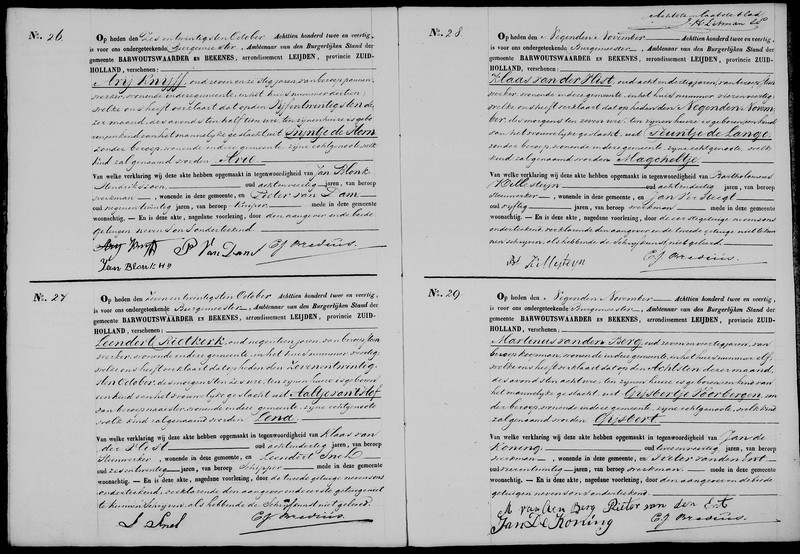 No. 26
Op heden den Zes en twintigsten October Achttien honderd twee en veertig,
is voor ons ondergeteekende Burgemeester, Ambtenaar van den Burgerlijken Stand der
gemeente BARWOUTSWAARDER EN BEKENES, arrondissement LEIJDEN, provincie ZUID-
HOLLAND, verschenen:
Arij Knijff oud zeven en
wonende in deze gemeente, in het huis nummer dertien
welke ons heeft verklaard dat op den Vijfentwintigsten de-
zer maand, des avonds ten half tien ure, ten zijnen huize is gebo-
ren een kind van het mannelijke geslacht uit Sijntje de Stam
zonder beroep, wonende in deze gemeente, zijne echtgenoote, welk
kind zal genaamd worden Arie
Van welke verklaring wij deze akte hebben opgemaakt in tegenwoordigheid van Jan Blonk
Hendrikszoon, oud achtenveertig jaren, van beroep
werkman, wonende in deze gemeente, en Pieter van Dam
oud negenentwintig jaren, van beroep kuiper mede in deze gemeente
woonachtig. — En is deze akte, nagedane voorlezing, door den aangever en beide
getuigen nevens ons onderteekend.
P. Van Dam
Jan Blonk Hz
No. 27
Op heden den zeven en twintigsten October Achttien honderd twee en veertig,
is voor ons ondergeteekende Burgemeester, Ambtenaar van den Burgerlijken Stand der
gemeente BARWOUTSWAARDER EN BEKENES, arrondissement LEIJDEN, provincie ZUID-
HOLLAND, verschenen:
Leendert Rietkerk, oud negentien jaren, van beroep steen
werker, wonende in deze gemeente, in het huis nummer veertig
welke ons heeft verklaard dat op heden den Zevenentwintig-
sten October, des morgens ten zes ure, ten zijnen huize is geboren
een kind van het vrouwelijke geslacht uit Aaltje van 't Hof
van beroep naaister, wonende in deze gemeente, zijne echtgenoote
welk kind zal genaamd worden Lena
Van welke verklaring wij deze akte hebben opgemaakt in tegenwoordigheid van Klaas van
der Hest oud achtendertig jaren, van beroep
Steenwerker, wonende in deze gemeente, en Leendert Snel
oud zesentwintig jaren, van beroep Schipper mede in deze gemeente
woonachtig. — En is deze akte, nagedane voorlezing, door de tweede getuige nevens ons
onderteekend, verklarende den aangever en de eerste getuige niet
te kunnen schrijven, als hebbende de Schrijfkunst niet geleerd.
L Snel
No. 28
Op heden den Negenden November Achttien honderd twee en veertig,
is voor ons ondergeteekende Burgemeester, Ambtenaar van den Burgerlijken Stand der
gemeente BARWOUTSWAARDER EN BEKENES, arrondissement LEIJDEN, provincie ZUID-
HOLLAND, verschenen:
Klaas van der Hest, oud achtendertig jaren, van beroep steen
werker, wonende in deze gemeente, in het huis nummer
welke ons heeft verklaard dat op heden den Negenden Novem-
ber, des morgens ten zeven ure, ten zijnen huize is geboren een kind
van het vrouwelijke geslacht, uit Teuntje de Lange
zonder beroep, wonende in deze gemeente, zijne echtgenoote, welk
kind zal genaamd worden Magcheltje
Van welke verklaring wij deze akte hebben opgemaakt in tegenwoordigheid van Bartholomeus
oud achtendertig jaren, van beroep
Steenwerker, wonende in deze gemeente, en Jan Versteegt
oud vijftig jaren, van beroep werkman mede in deze gemeente
woonachtig. — En is deze akte, nagedane voorlezing, door de eerste getuige nevens ons
onderteekend, verklarende den aangever en de tweede getuige niet te kun-
nen schrijven, als hebbende de Schrijfkunst niet geleerd.
No. 29
Op heden den Negenden November Achttien honderd twee en veertig,
is voor ons ondergeteekende Burgemeester, Ambtenaar van den Burgerlijken Stand der
gemeente BARWOUTSWAARDER EN BEKENES, arrondissement LEIJDEN, provincie ZUID-
HOLLAND, verschenen:
Martinus van den Berg, oud zeven en veertig jaren, van
beroep koopman, wonende in deze gemeente, in het huis nummer elf
welke ons heeft verklaard dat op den Achtsten dezer maand,
des avonds ten acht ure, ten zijnen huize is geboren een kind van
het mannelijke geslacht, uit Gijsbertje Voorbergen, zon-
der beroep, wonende in deze gemeente, zijne echtgenoote, welk kind
zal genaamd worden Gijsbert
Van welke verklaring wij deze akte hebben opgemaakt in tegenwoordigheid van Jan de
Koning oud tweeenveertig jaren, van beroep
werkman, wonende in deze gemeente, en Pieter van den Ent
oud zevenentwintig jaren, van beroep werkman mede in deze gemeente
woonachtig. — En is deze akte, nagedane voorlezing, door den aangever en beide
getuigen nevens ons onderteekend.
M van den Berg Pieter van den Ent
Jan De Koning